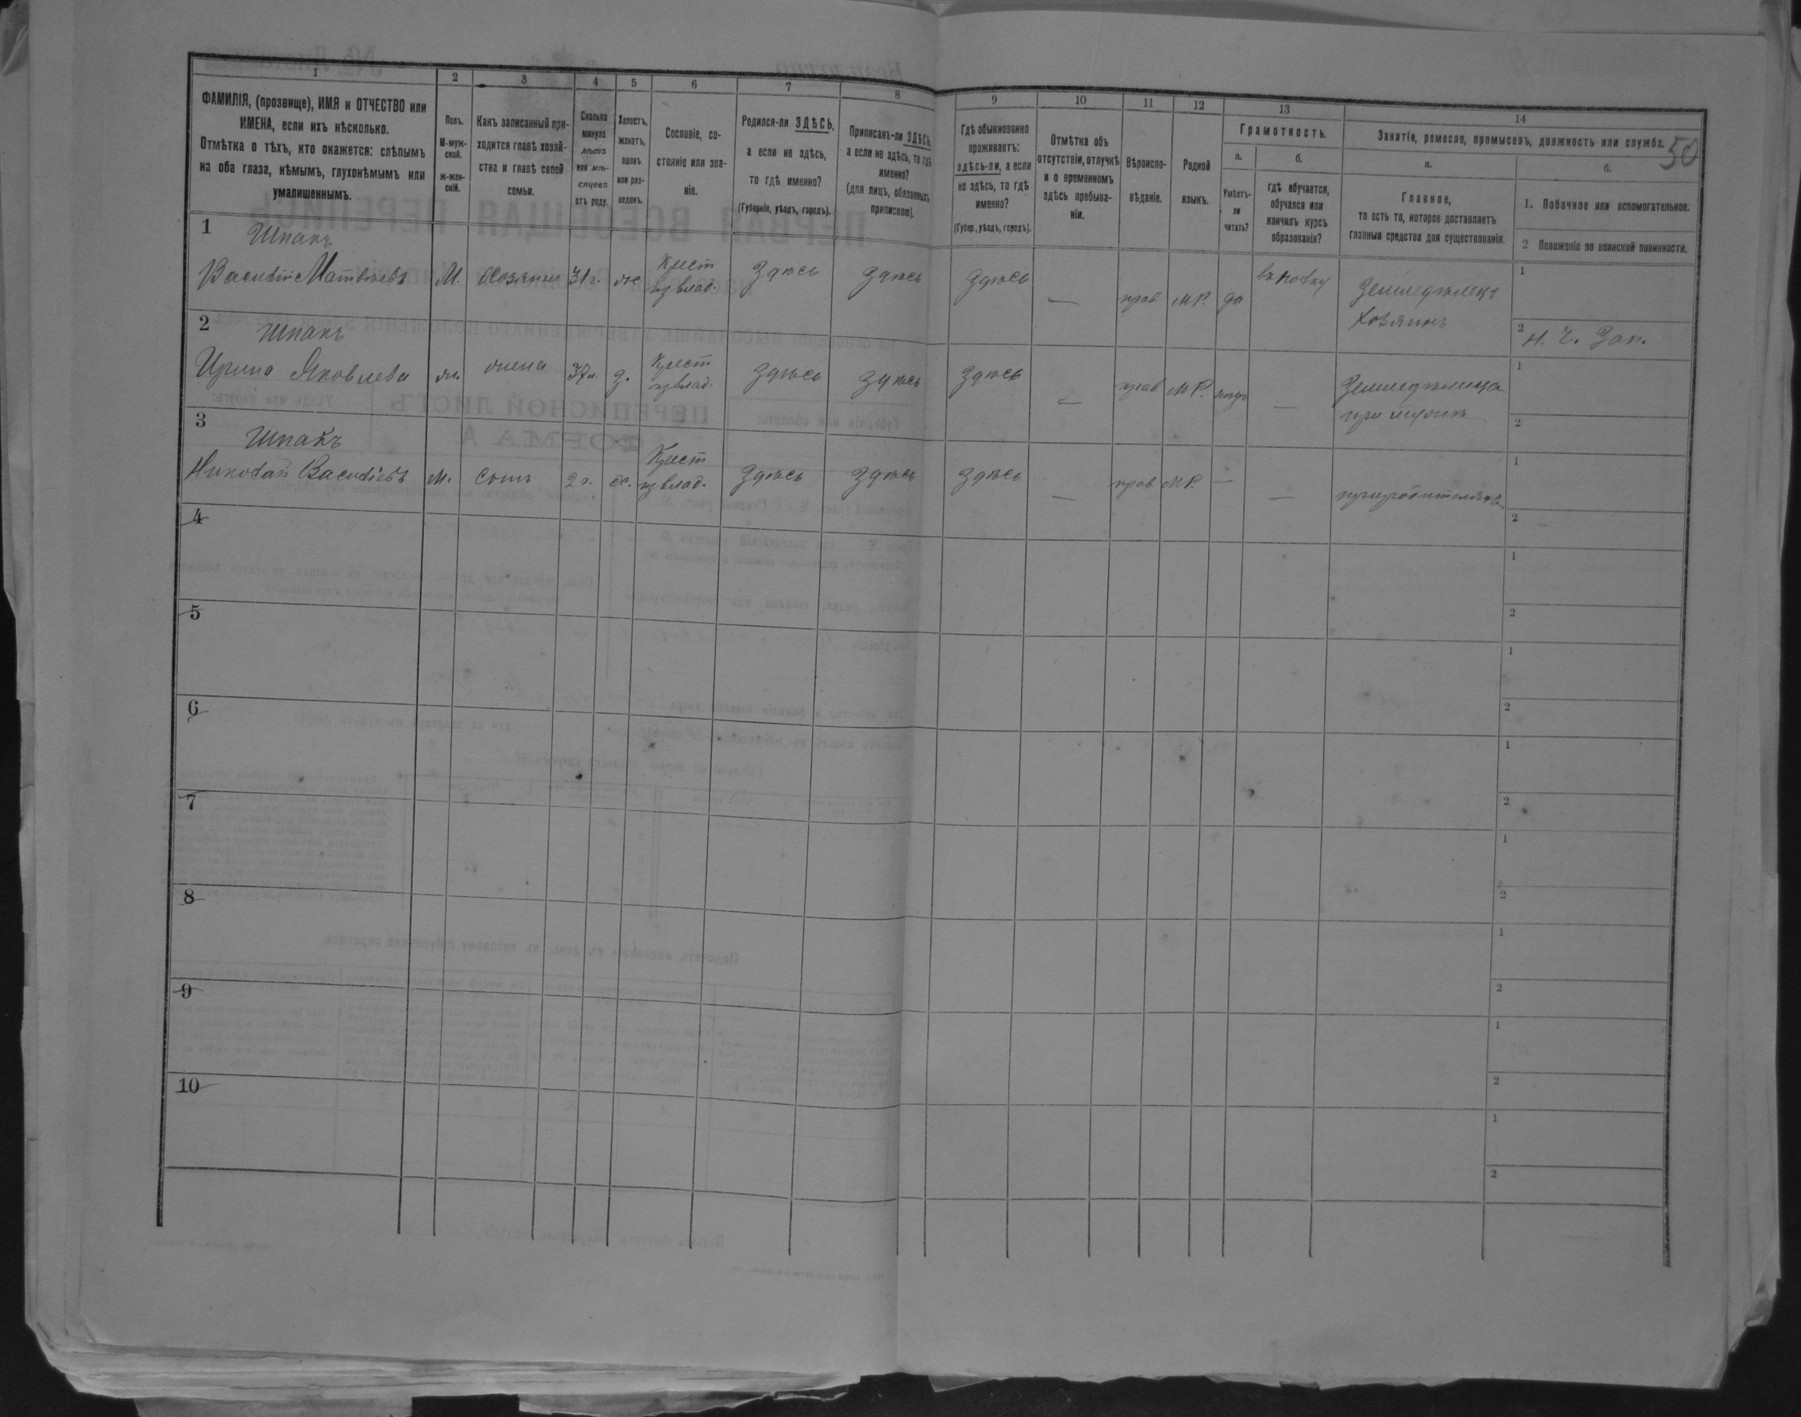 1 2 3 4 5 6 7 8 9 10 11 12 13 14
50
ФАМИЛІЯ, (прозвище), ИМЯ и ОТЧЕСТВО или
ИМЕНА, если ихъ нѣсколько.
Отмѣтка о тѣхъ, кто окажется: слѣпымъ
на оба глаза, нѣмымъ, глухонѣмымъ или
умалишеннымъ.
Полъ.
М-муж-
ской.
ж-жен-
скій.
Какъ записанный при-
ходится главѣ хозяй-
ства и главѣ своей
семьи.
Сколько
минуло
лѣтъ
или мѣ-
сяцевъ
отъ роду.
Холостъ,
женатъ,
вдовъ
или раз-
веденъ.
Сословіе, со-
стояніе или зва-
ніе.
Родился-ли ЗДѢСЬ,
а если не здѣсь,
то гдѣ именно?
(Губернія, уѣздъ, городъ).
Приписанъ-ли ЗДѢСЬ,
а если не здѣсь, то гдѣ
именно?
(для лицъ, обязанныхъ
припискою).
Гдѣ обыкновенно
проживаетъ:
здѣсь-ли, а если
не здѣсь, то гдѣ
именно?
(Губер., уѣздъ, городъ).
Отмѣтка объ
отсутствіи, отлучкѣ
и о временномъ
здѣсь пребыва-
ніи.
Вѣроиспо-
вѣданіе.
Родной
языкъ.
Грамотность.
а.
Умѣетъ-
ли
читать?
б.
гдѣ обучается,
обучался или
кончилъ курсъ
образованія?
Занятіе, ремесло, промыселъ, должность или служба.
а.
Главное,
то есть то, которое доставляетъ
главныя средства для существованія.
б.
1. Побочное или вспомогательное.
2 Положеніе по воинской повинности.
1 Шпакъ
Василій Матвѣевъ М. хозяинъ 31 г. ж Крест из влад. Здѣсь здѣсь здѣсь — прав М.Р. да
Земледѣлецъ
Хозяинъ
1
2 Н. Ч. Зап.
2 Шпакъ
Ирина Яковлева ж. жена 37 л. з. Крест из влад. здѣсь здѣсь здѣсь — прав М.Р. нѣтъ —
Земледѣлица
при мужѣ
1
2
3 Шпакъ
Николай Васильевъ М. сынъ 2 г. х. Крест из влад. здѣсь здѣсь здѣсь — прав М.Р. — —
при родителяхъ
1
2
4
1
2
5
1
2
6
1
2
7
1
2
8
1
2
9
1
2
10
1
2